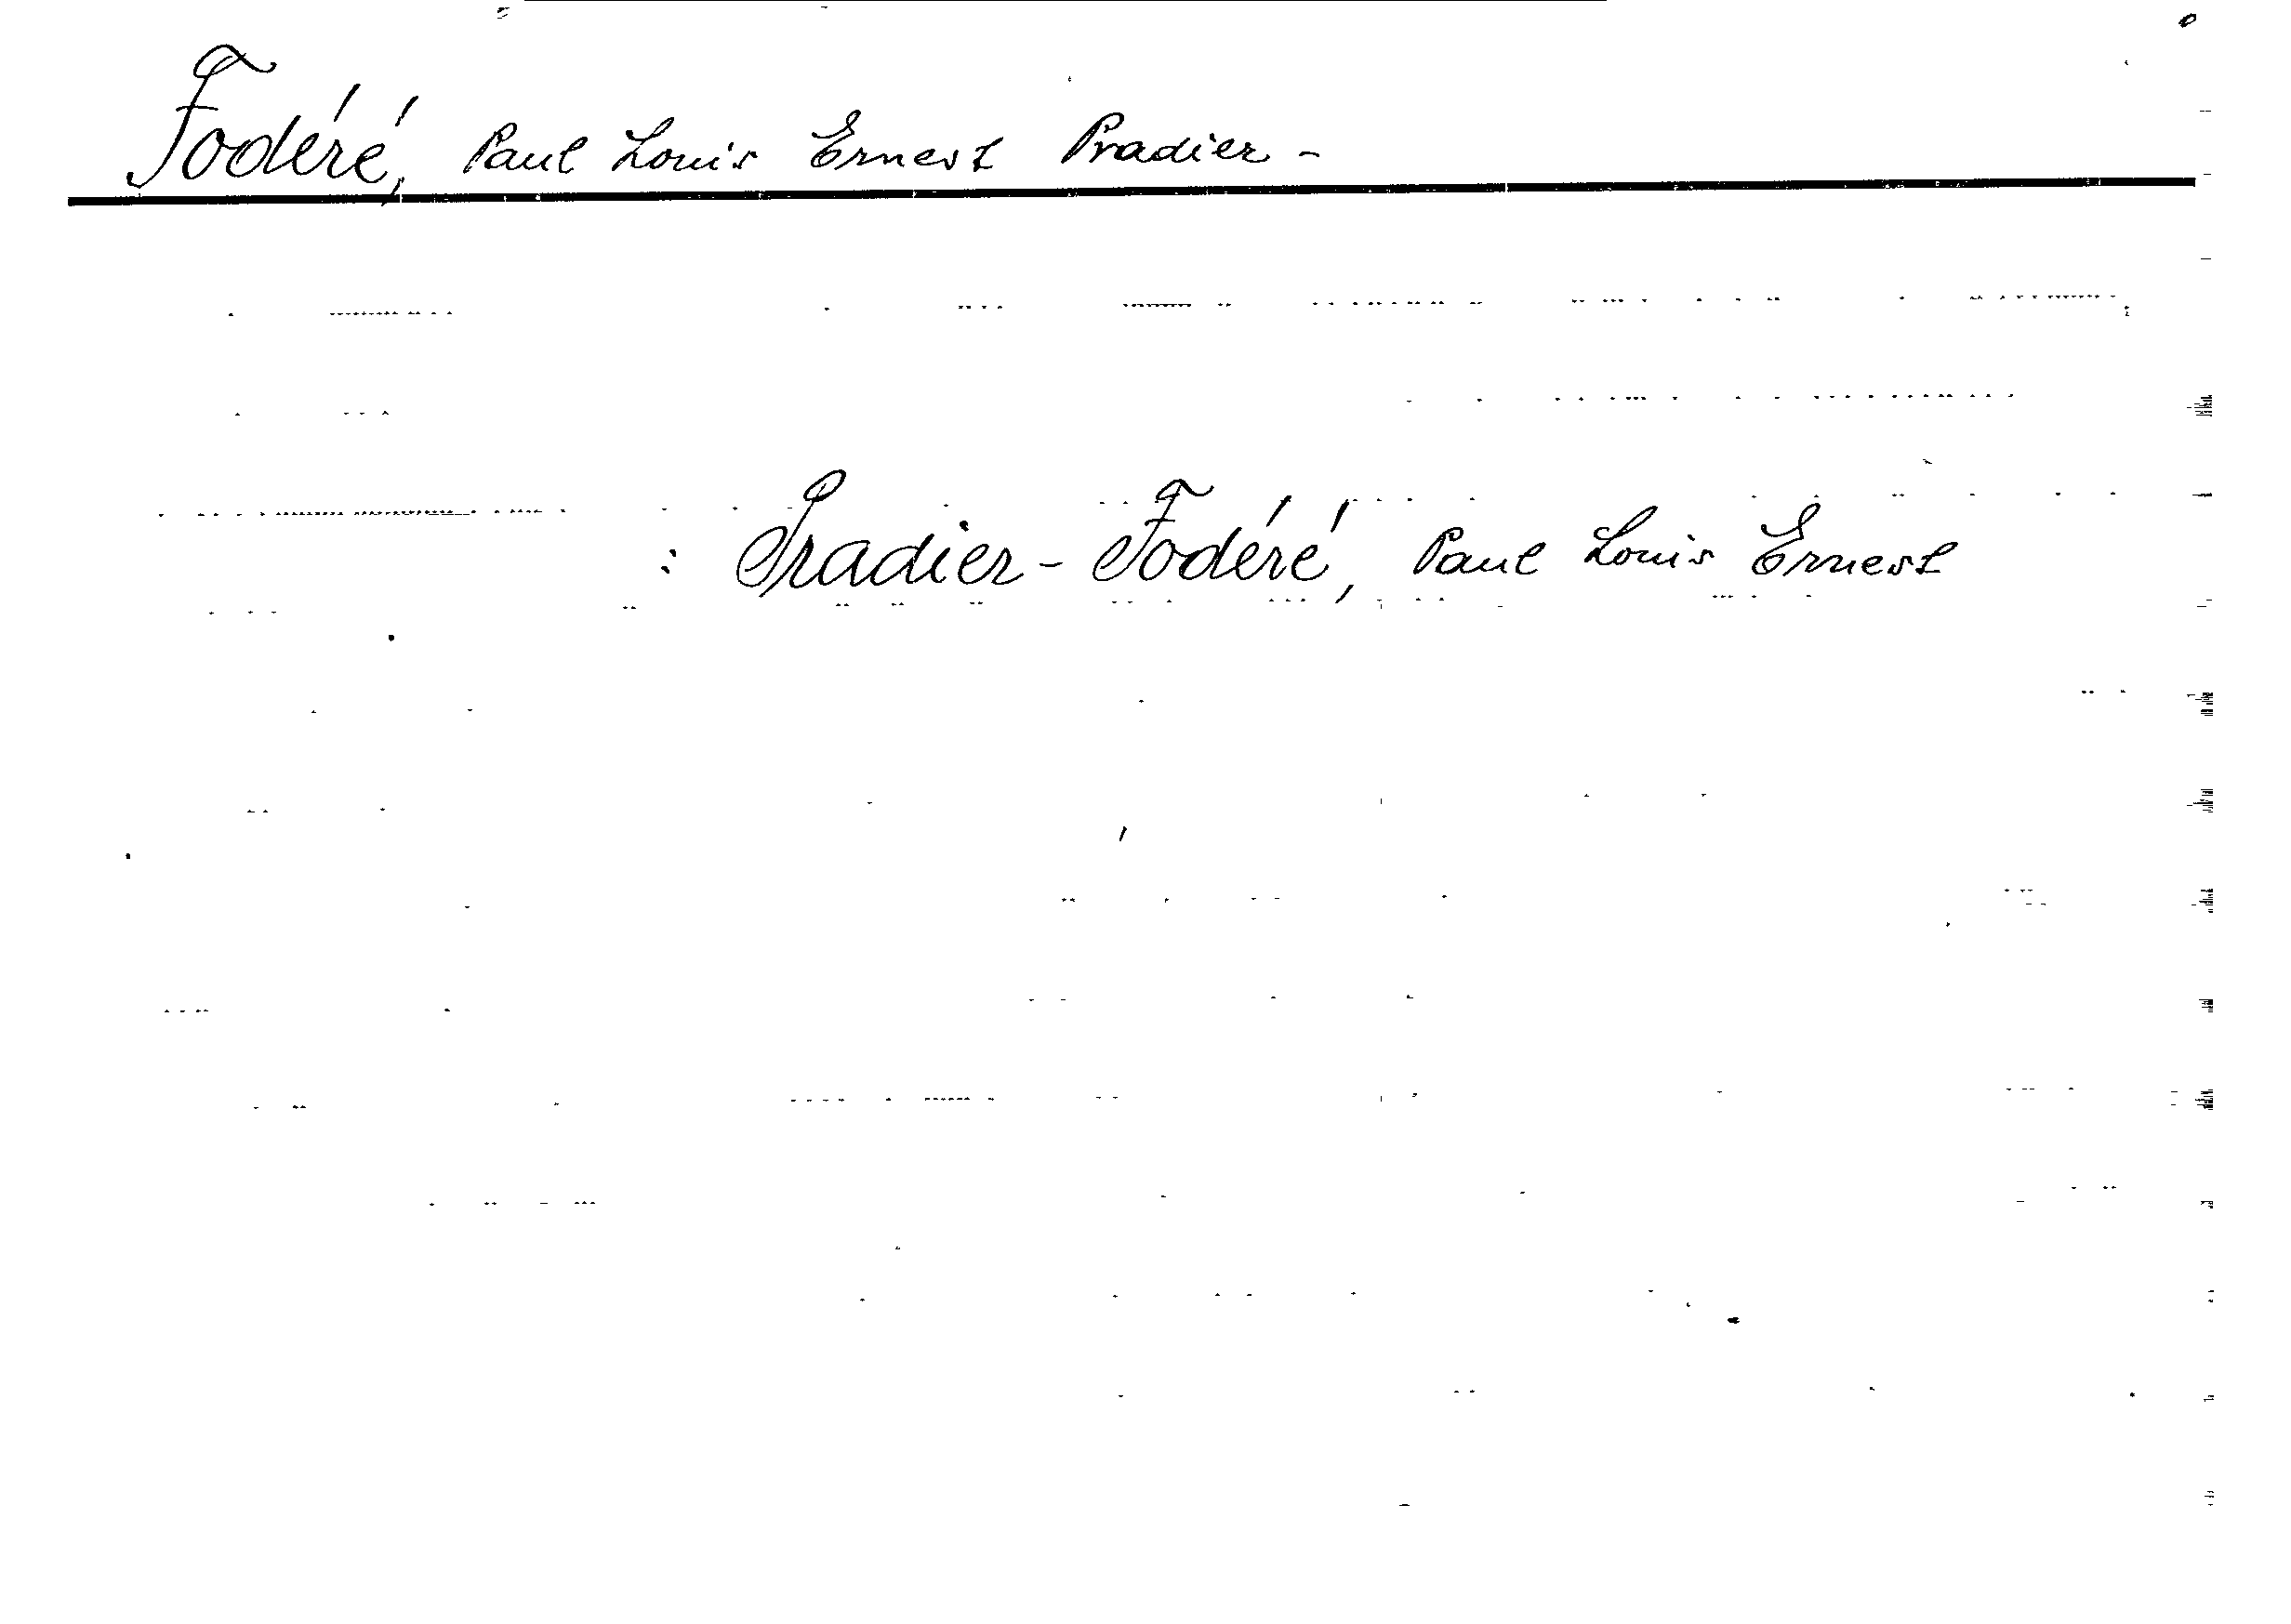 Fodéré, Paul Louis Ernest Pradier-
: Pradier-Fodéré, Paul Louis Ernest